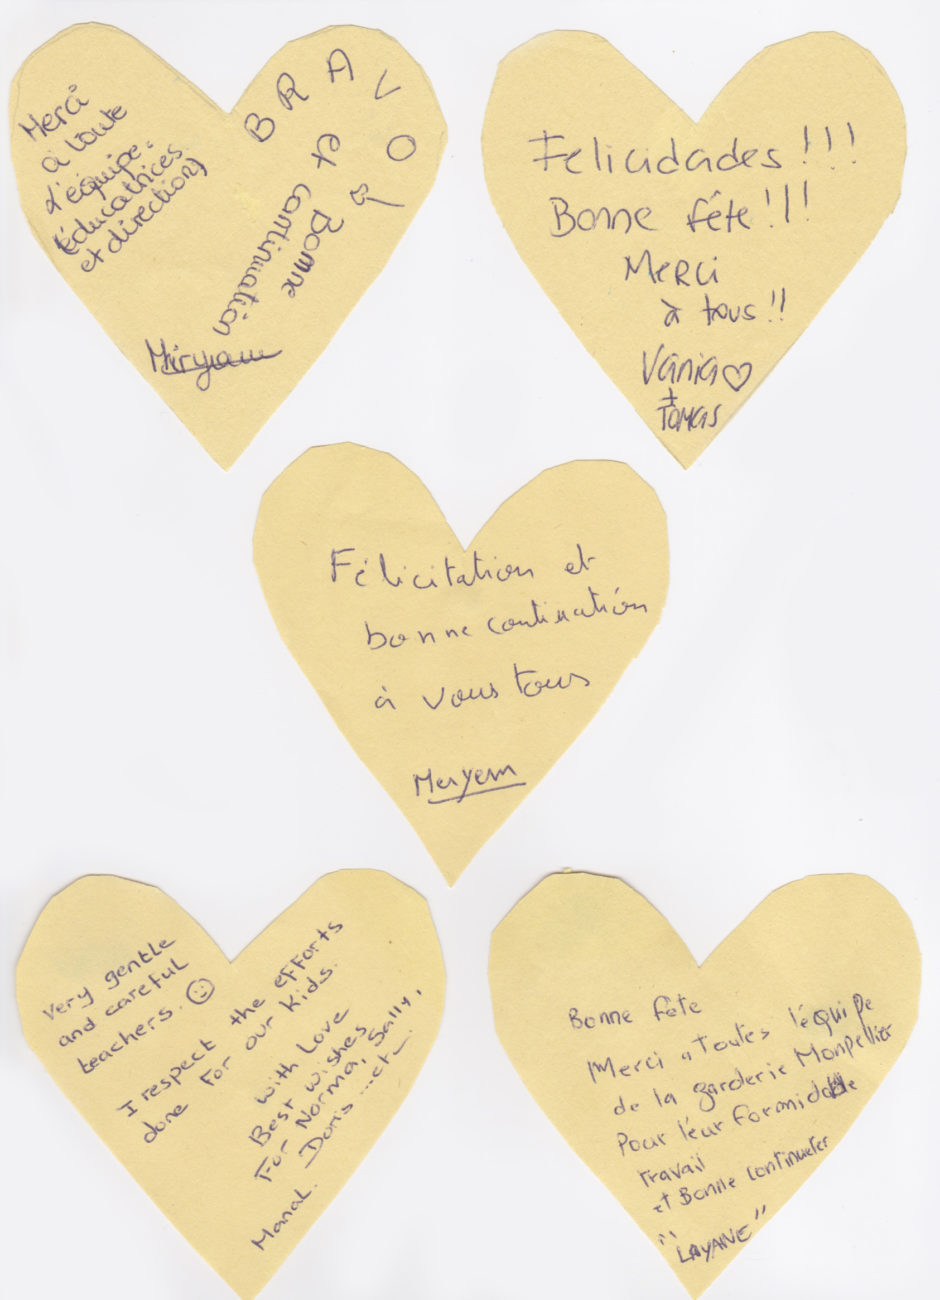 Merci
à toute
l'équipe:
(éducatrices
et direction)
BRAVO
et Bonne
continuation
Miryam
Felicidades!!!
Bonne fête!!!
Merci
à tous!!
Vania♡
+
Tomas
Félicitation et
bonne continuation
à vous tous
Meryem
Very gentle
and careful
teachers. ☺
I respect the efforts
done for our kids.
with Love
Best wishes
For Norma, Sally,
Doris ...et
Manal.
Bonne fête
Merci a Toutes l'équipe
de la garderie Monpellier
Pour léur formidable
travail
et Bonne continueter
"LAYANE"